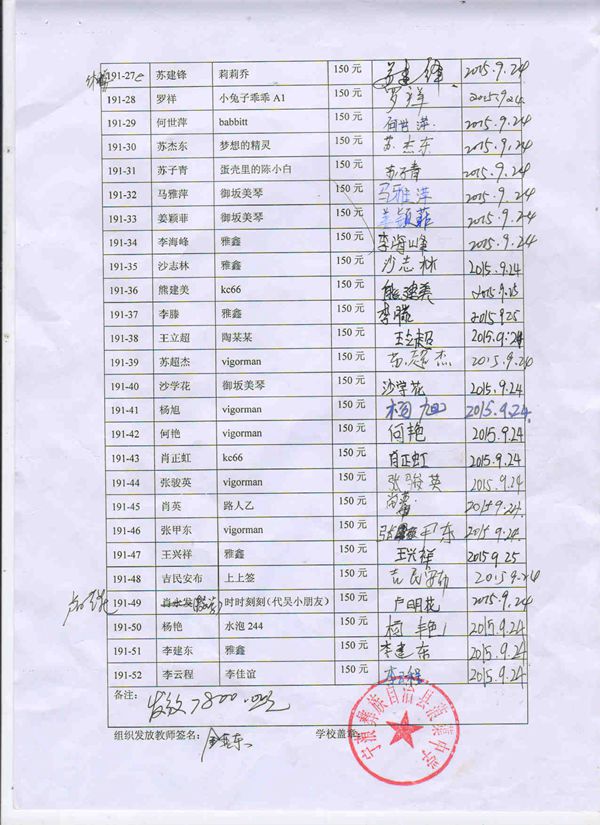 191-27 苏建锋 莉莉乔 150 元 苏建锋 2015.9.24
191-28 罗祥 小兔子乖乖 A1 150 元 罗祥 2015.9.24
191-29 何世萍 babbitt 150 元 何世萍 2015.9.24
191-30 苏杰东 梦想的精灵 150 元 苏杰东 2015.9.24
191-31 苏子青 蛋壳里的陈小白 150 元 苏子青 2015.9.24
191-32 马雅萍 御坂美琴 150 元 马雅萍 2015.9.24
191-33 姜颖菲 御坂美琴 150 元 姜颖菲 2015.9.24
191-34 李海峰 雅鑫 150 元 李海峰 2015.9.24
191-35 沙志林 雅鑫 150 元 沙志林 2015.9.24
191-36 熊建美 kc66 150 元 熊建美 2015.9.25
191-37 李滕 雅鑫 150 元 李滕 2015.9.25
191-38 王立超 陶某某 150 元 王立超 2015.9.24
191-39 苏超杰 vigorman 150 元 苏超杰 2015.9.24
191-40 沙学花 御坂美琴 150 元 沙学花 2015.9.24
191-41 杨旭 vigorman 150 元 杨旭 2015.9.24
191-42 何艳 vigorman 150 元 何艳 2015.9.24
191-43 肖正虹 kc66 150 元 肖正虹 2015.9.24
191-44 张骏英 vigorman 150 元 张骏英 2015.9.24
191-45 肖英 路人乙 150 元 2015.9.24
191-46 张甲东 vigorman 150 元 张甲东 2015.9.24
191-47 王兴祥 雅鑫 150 元 王兴祥 2015.9.25
191-48 吉民安布 上上签 150 元 吉民安布 2015.9.24
191-49 时时刻刻（代吴小朋友） 150 元 卢明花 2015.9.24
191-50 杨艳 水泡 244 150 元 杨艳 2015.9.24
191-51 李建东 雅鑫 150 元 李建东 2015.9.24
191-52 李云程 李佳谊 150 元 李云程 2015.9.24
备注：
发放7800.00元
组织发放教师签名： 学校盖章：
宁蒗彝族自治县蒗蕖中学